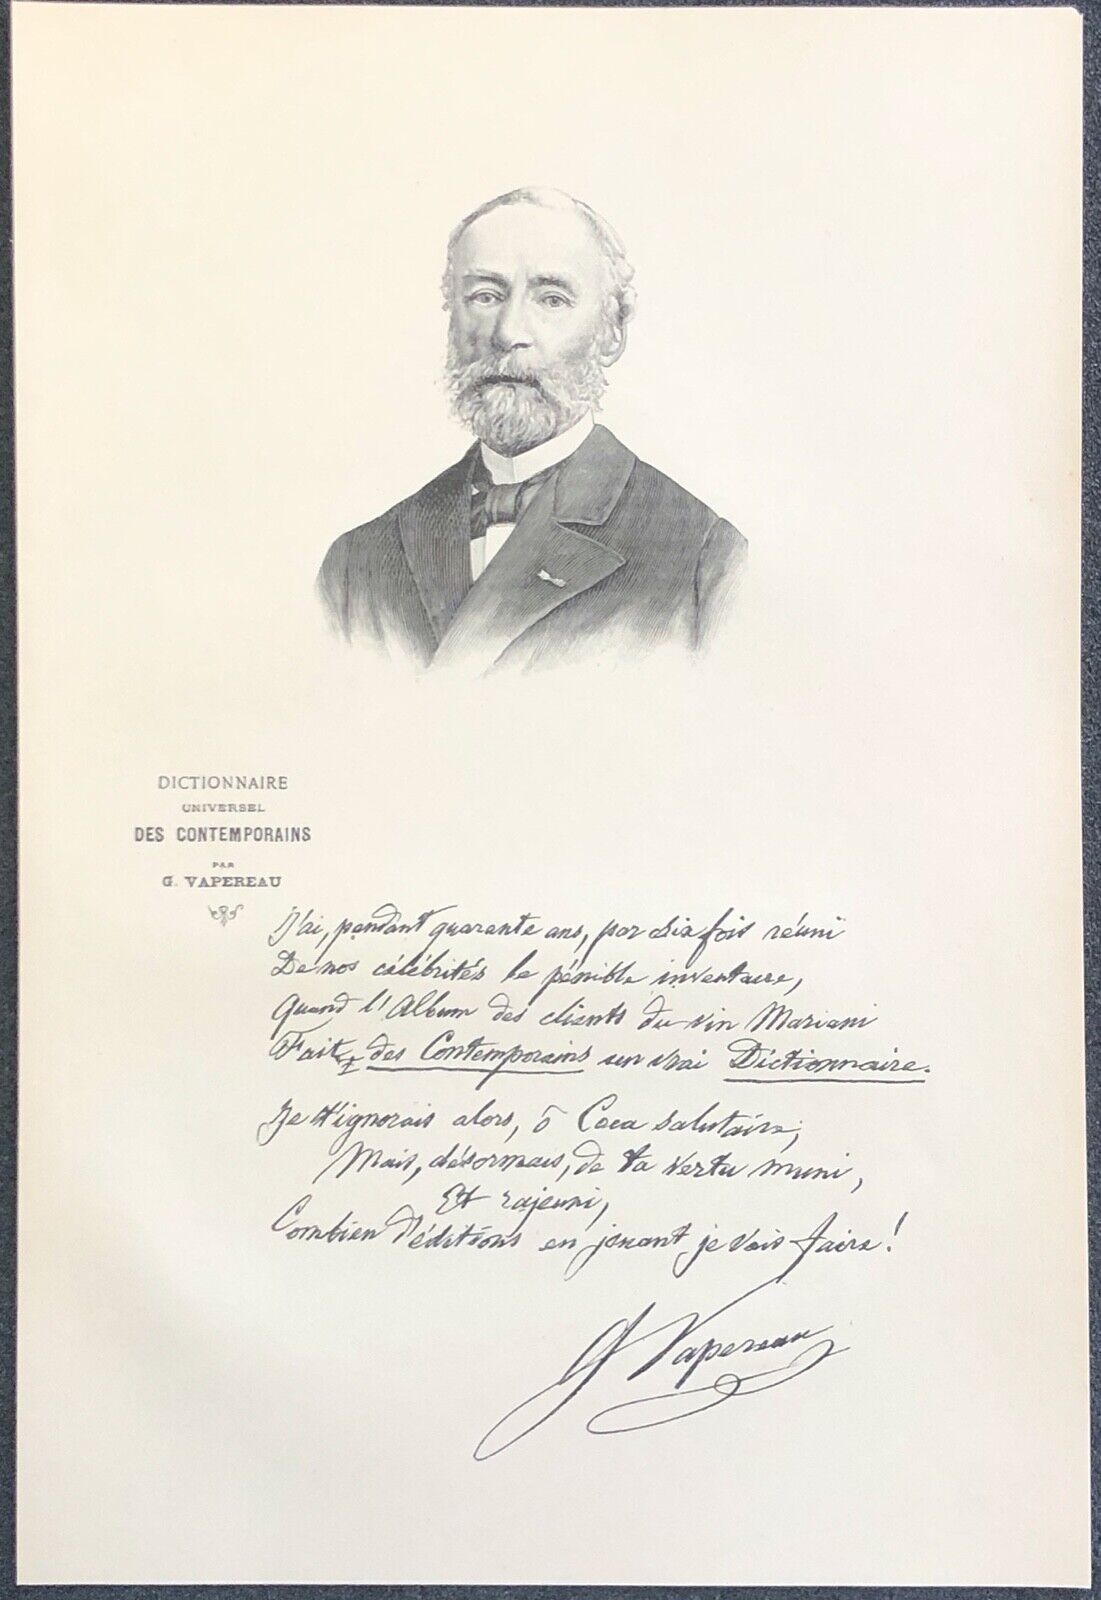 DICTIONNAIRE
UNIVERSEL
DES CONTEMPORAINS
PAR
G. VAPEREAU
J'ai, pendant quarante ans, par dix fois réuni
De nos célébrités le pénible inventaire,
Quand l'Album des clients du vin Mariani
Fait des Contemporains un vrai Dictionnaire.
Je t'ignorais alors, ô Coca salutaire;
Mais, désormais, de ta vertu muni,
Et rajeuni,
Combien d'éditions en jouant je vais faire!
G Vapereau